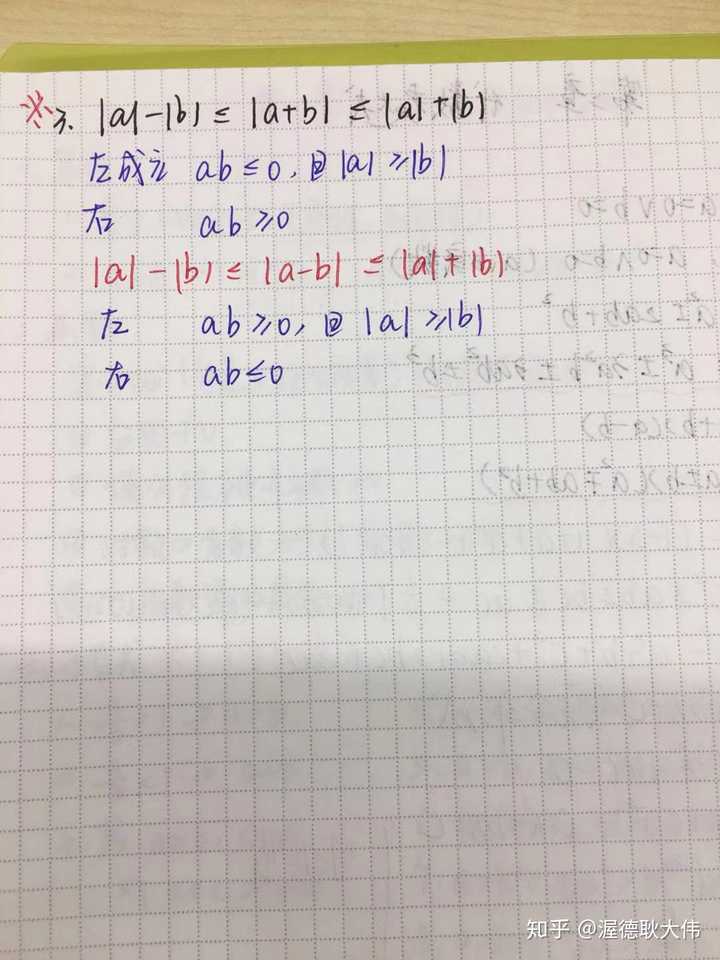 ※3. |a|-|b| ≤ |a+b| ≤ |a|+|b|
左成立 ab ≤ 0, 且 |a| ≥ |b|
右 ab ≥ 0
|a|-|b| ≤ |a-b| ≤ |a|+|b|
左 ab ≥ 0, 且 |a| ≥ |b|
右 ab ≤ 0
知乎 @渥德耿大伟